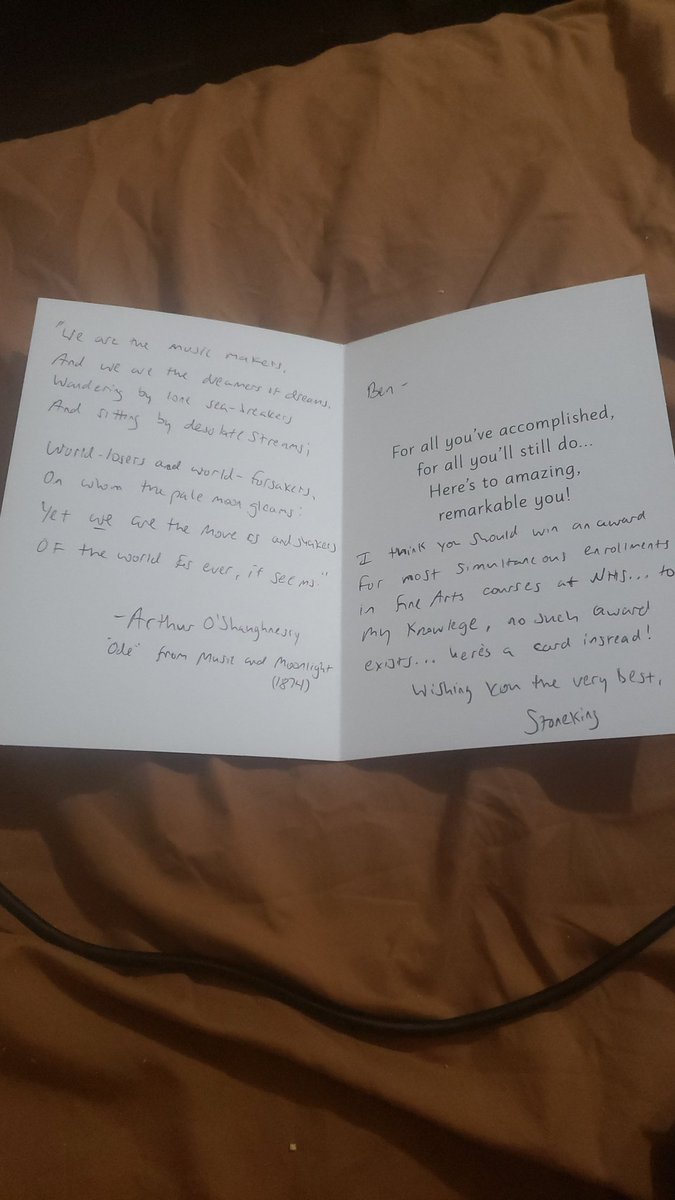 "We are the music makers,
And we are the dreamers of dreams,
Wandering by lone sea-breakers
And sitting by desolate streams;
World-losers and world-forsakers,
On whom the pale moon gleams:
Yet we are the movers and shakers
Of the world for ever, it seems."
-Arthur O'Shaughnessy
"Ode" from Music and Moonlight
(1874)
Ben -
For all you've accomplished,
for all you'll still do...
Here's to amazing,
remarkable you!
I think you should win an award
for most simultaneous enrollments
in fine Arts courses at NHS... to
my knowlege, no such award
exists... here's a card instead!
Wishing you the very best,
Stoneking